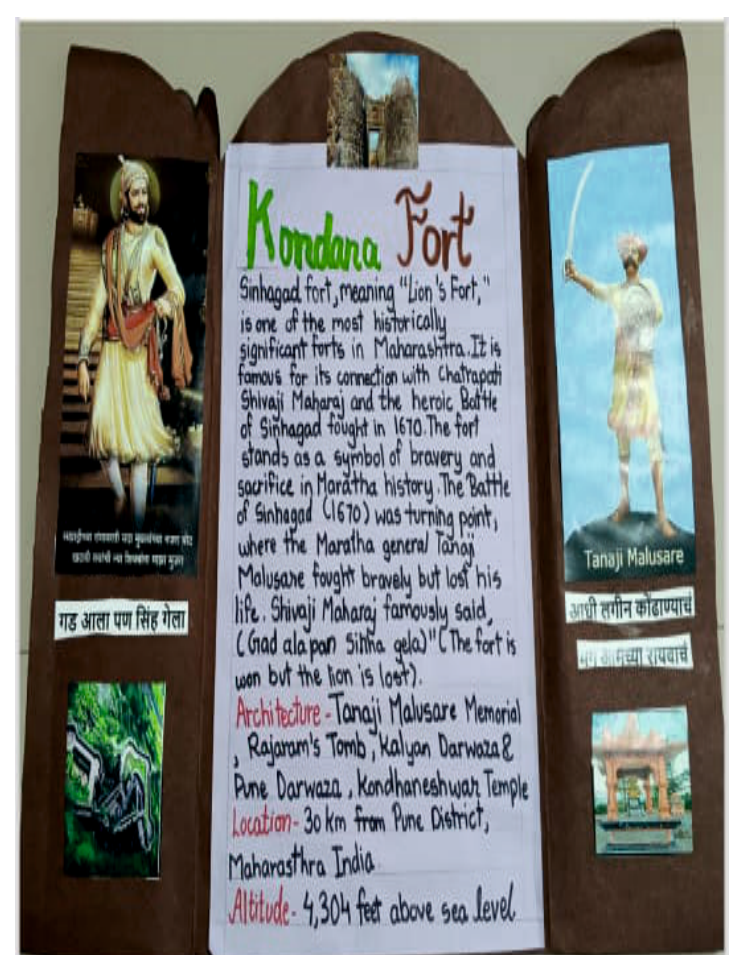 Kondana Fort
Sinhagad fort, meaning "Lion's Fort,"
is one of the most historically
significant forts in Maharashtra. It is
famous for its connection with Chatrapati
Shivaji Maharaj and the heroic Battle
of Sinhagad fought in 1670. The fort
stands as a symbol of bravery and
sacrifice in Maratha history. The Battle
of Sinhagad (1670) was turning point,
where the Maratha general Tanaji
Malusare fought bravely but lost his
life. Shivaji Maharaj famously said,
(Gad ala pan Sinha gela)" (The fort is
won but the lion is lost).
Architecture - Tanaji Malusare Memorial
, Rajaram's Tomb, Kalyan Darwaza &
Pune Darwaza, Kondhaneshwar Temple
Location - 30 km from Pune District,
Maharasthra India.
Altitude - 4,304 feet above sea level
गड आला पण सिंह गेला
Tanaji Malusare
आधी लगीन कोंढाण्याचं
मग आमच्या रायबाचं